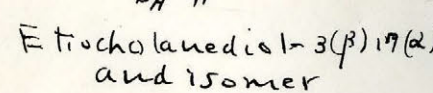 Etiocholanediol-3(β),17(α)
and isomer